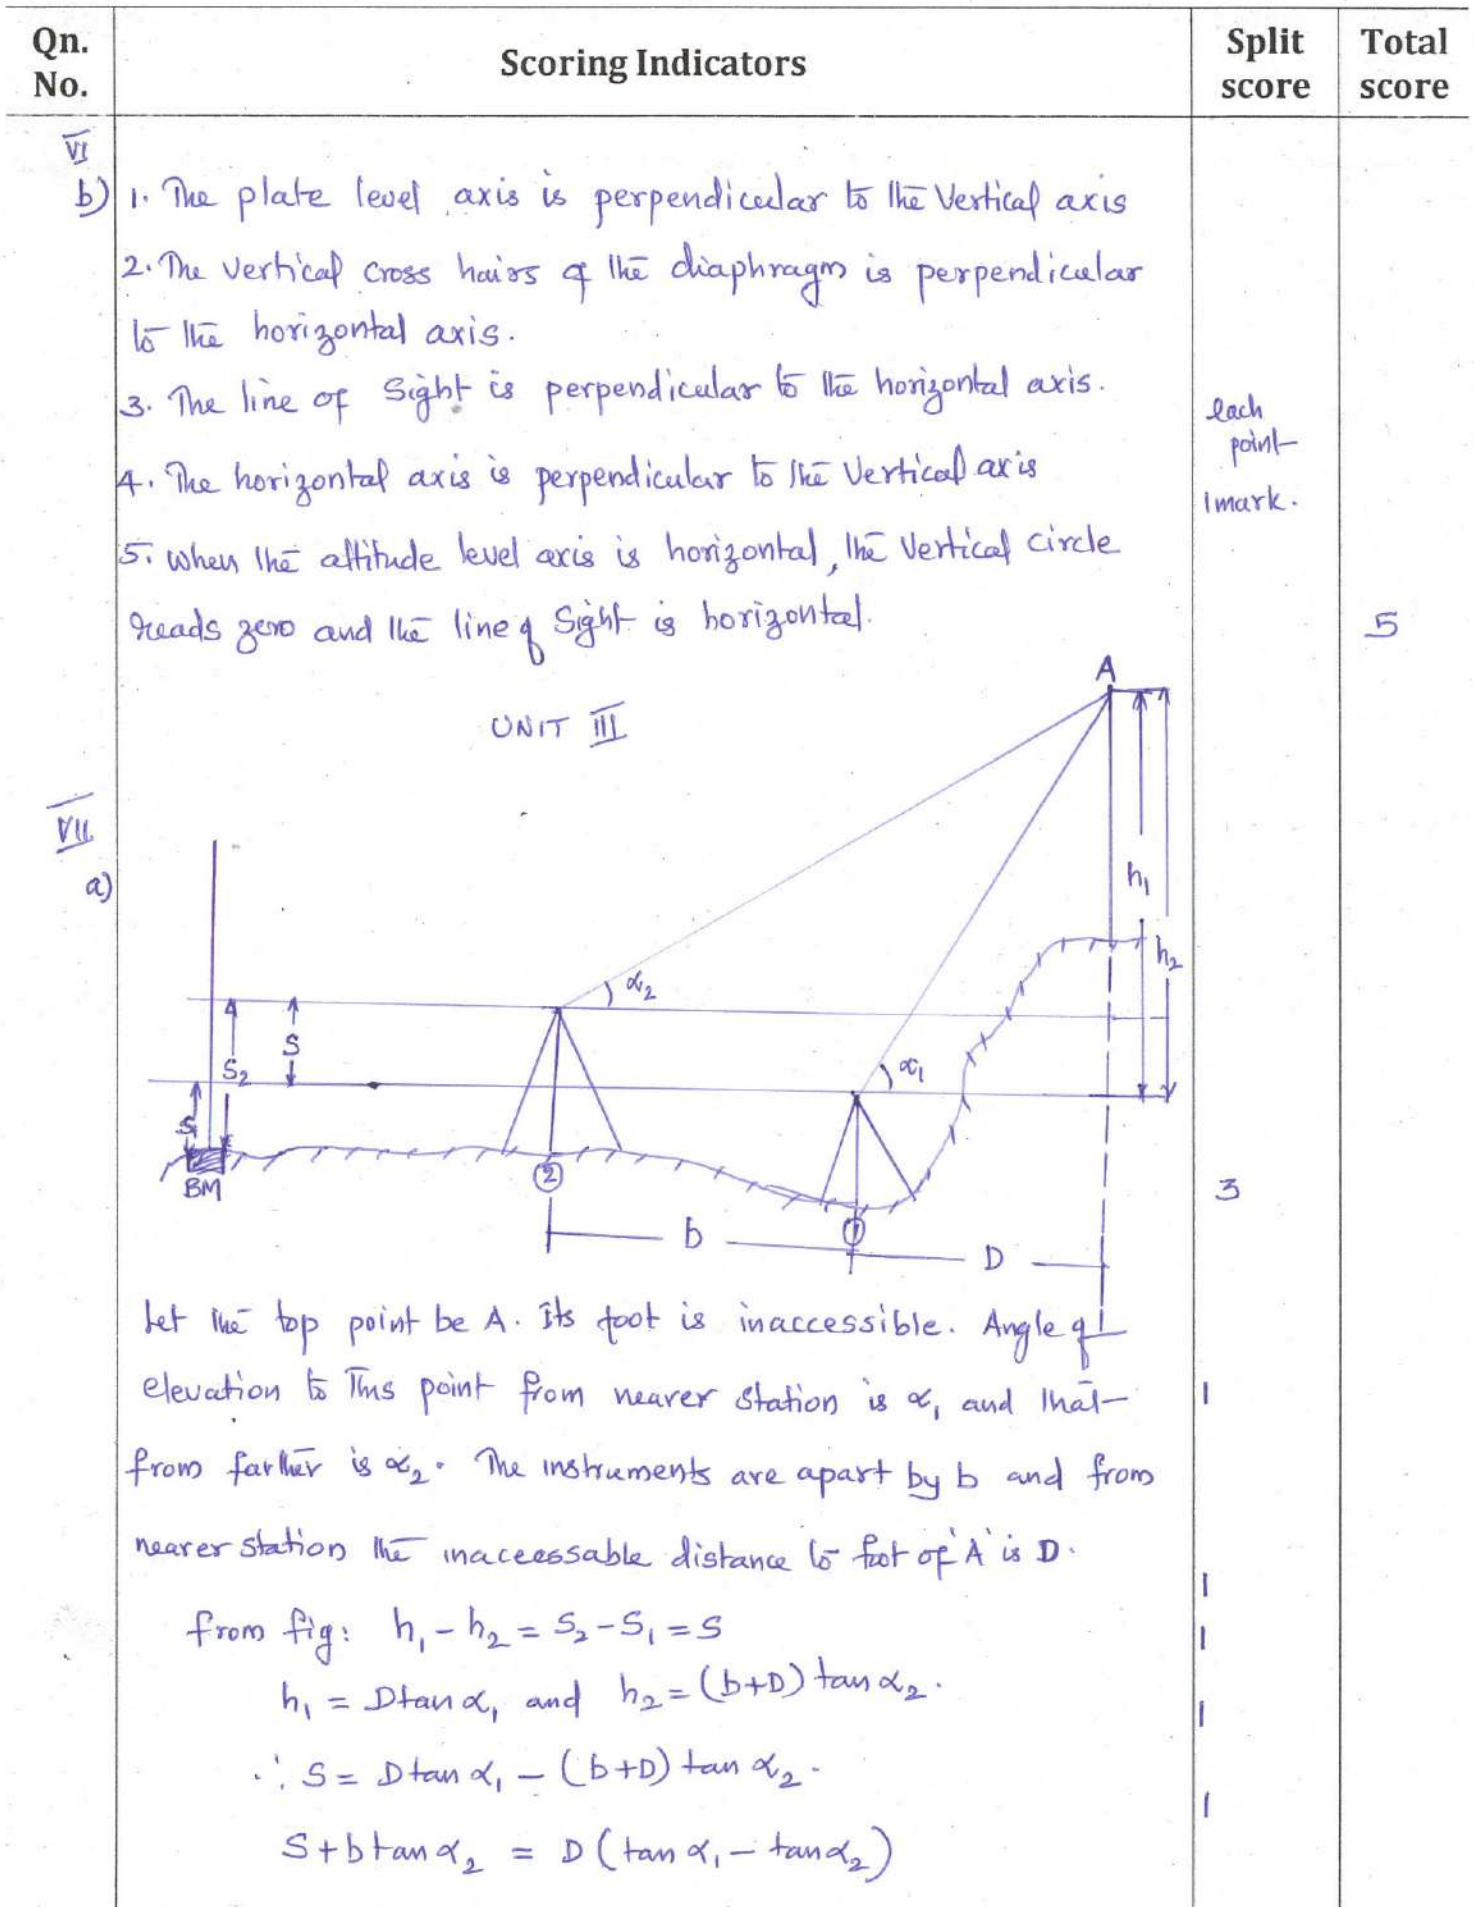 Qn. No.
Scoring Indicators
Split score
Total score
VI
b) 1. The plate level axis is perpendicular to the Vertical axis
2. The vertical cross hairs of the diaphragm is perpendicular
to the horizontal axis.
3. The line of Sight is perpendicular to the horizontal axis.
each
point
1 mark.
4. The horizontal axis is perpendicular to the Vertical axis
5. When the altitude level axis is horizontal, the Vertical circle
reads zero and the line of Sight is horizontal.
5
UNIT III
VII
a)
A
h₁
h₂
α₂
S
S₂
α₁
S₁
BM
②
①
3
b
D
Let the top point be A. Its foot is inaccessible. Angle of
elevation to this point from nearer station is α₁ and that
1
from farther is α₂. The instruments are apart by b and from
nearer station the inaceessable distance to foot of 'A' is D.
1
from fig: h₁ - h₂ = S₂ - S₁ = S
1
h₁ = D tan α₁ and h₂ = (b+D) tan α₂.
1
∴ S = D tan α₁ - (b+D) tan α₂.
1
S + b tan α₂ = D (tan α₁ - tan α₂)